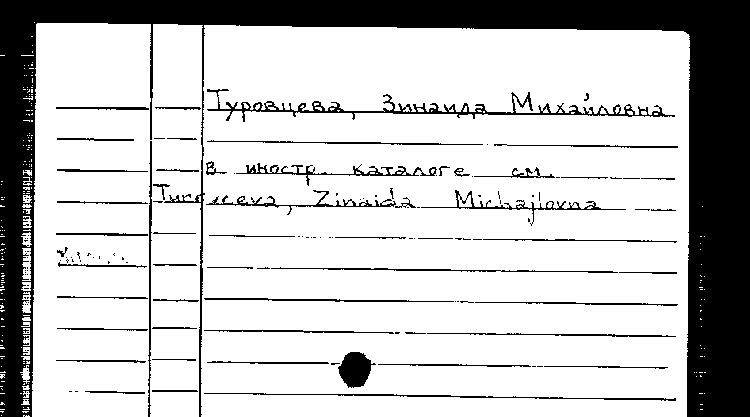 Туровцева, Зинаида Михайловна
В иностр. каталоге см.
Zinaida Michajlovna